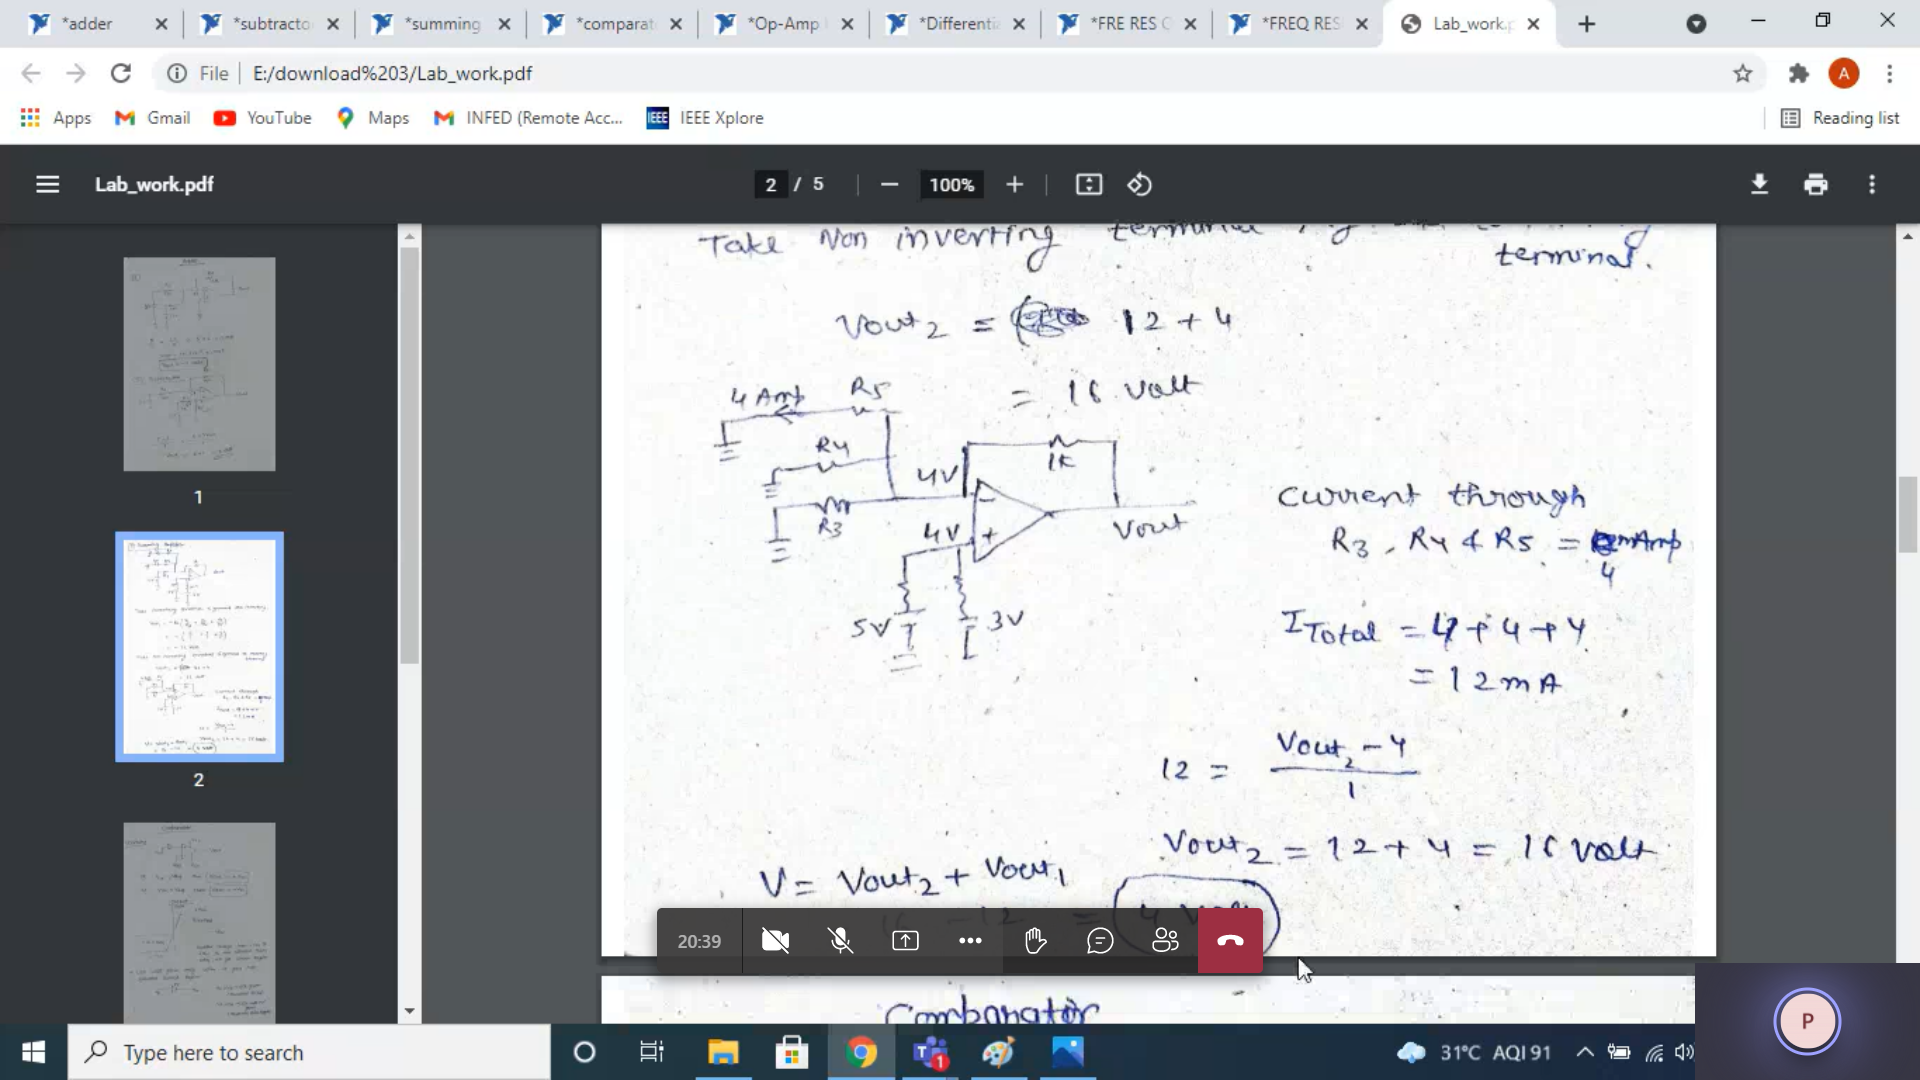 *adder
*subtracto
*summing
*comparat
*Op-Amp
*Differenti
*FRE RES
*FREQ RES
Lab_work.p
File E:/download%203/Lab_work.pdf
Apps
Gmail
YouTube
Maps
INFED (Remote Acc...
IEEE
IEEE Xplore
Reading list
Lab_work.pdf
2 / 5
100%
1
2
Take Non inverting terminal
terminal.
Vout2 = 12 + 4
= 16 volt
4 Amp R5
R4
1K
4V
R3
4V
- +
Vout
5V
3V
Current through
R3, R4 & R5 = mAmp
4
ITotal = 4 + 4 + 4
= 12 mA
12 = Vout2 - 4
1
Vout2 = 12 + 4 = 16 volt
V = Vout2 + Vout1
16 - 12 = 4 Volt
Combarator
20:39
Type here to search
1
31°C AQI 91
A
P